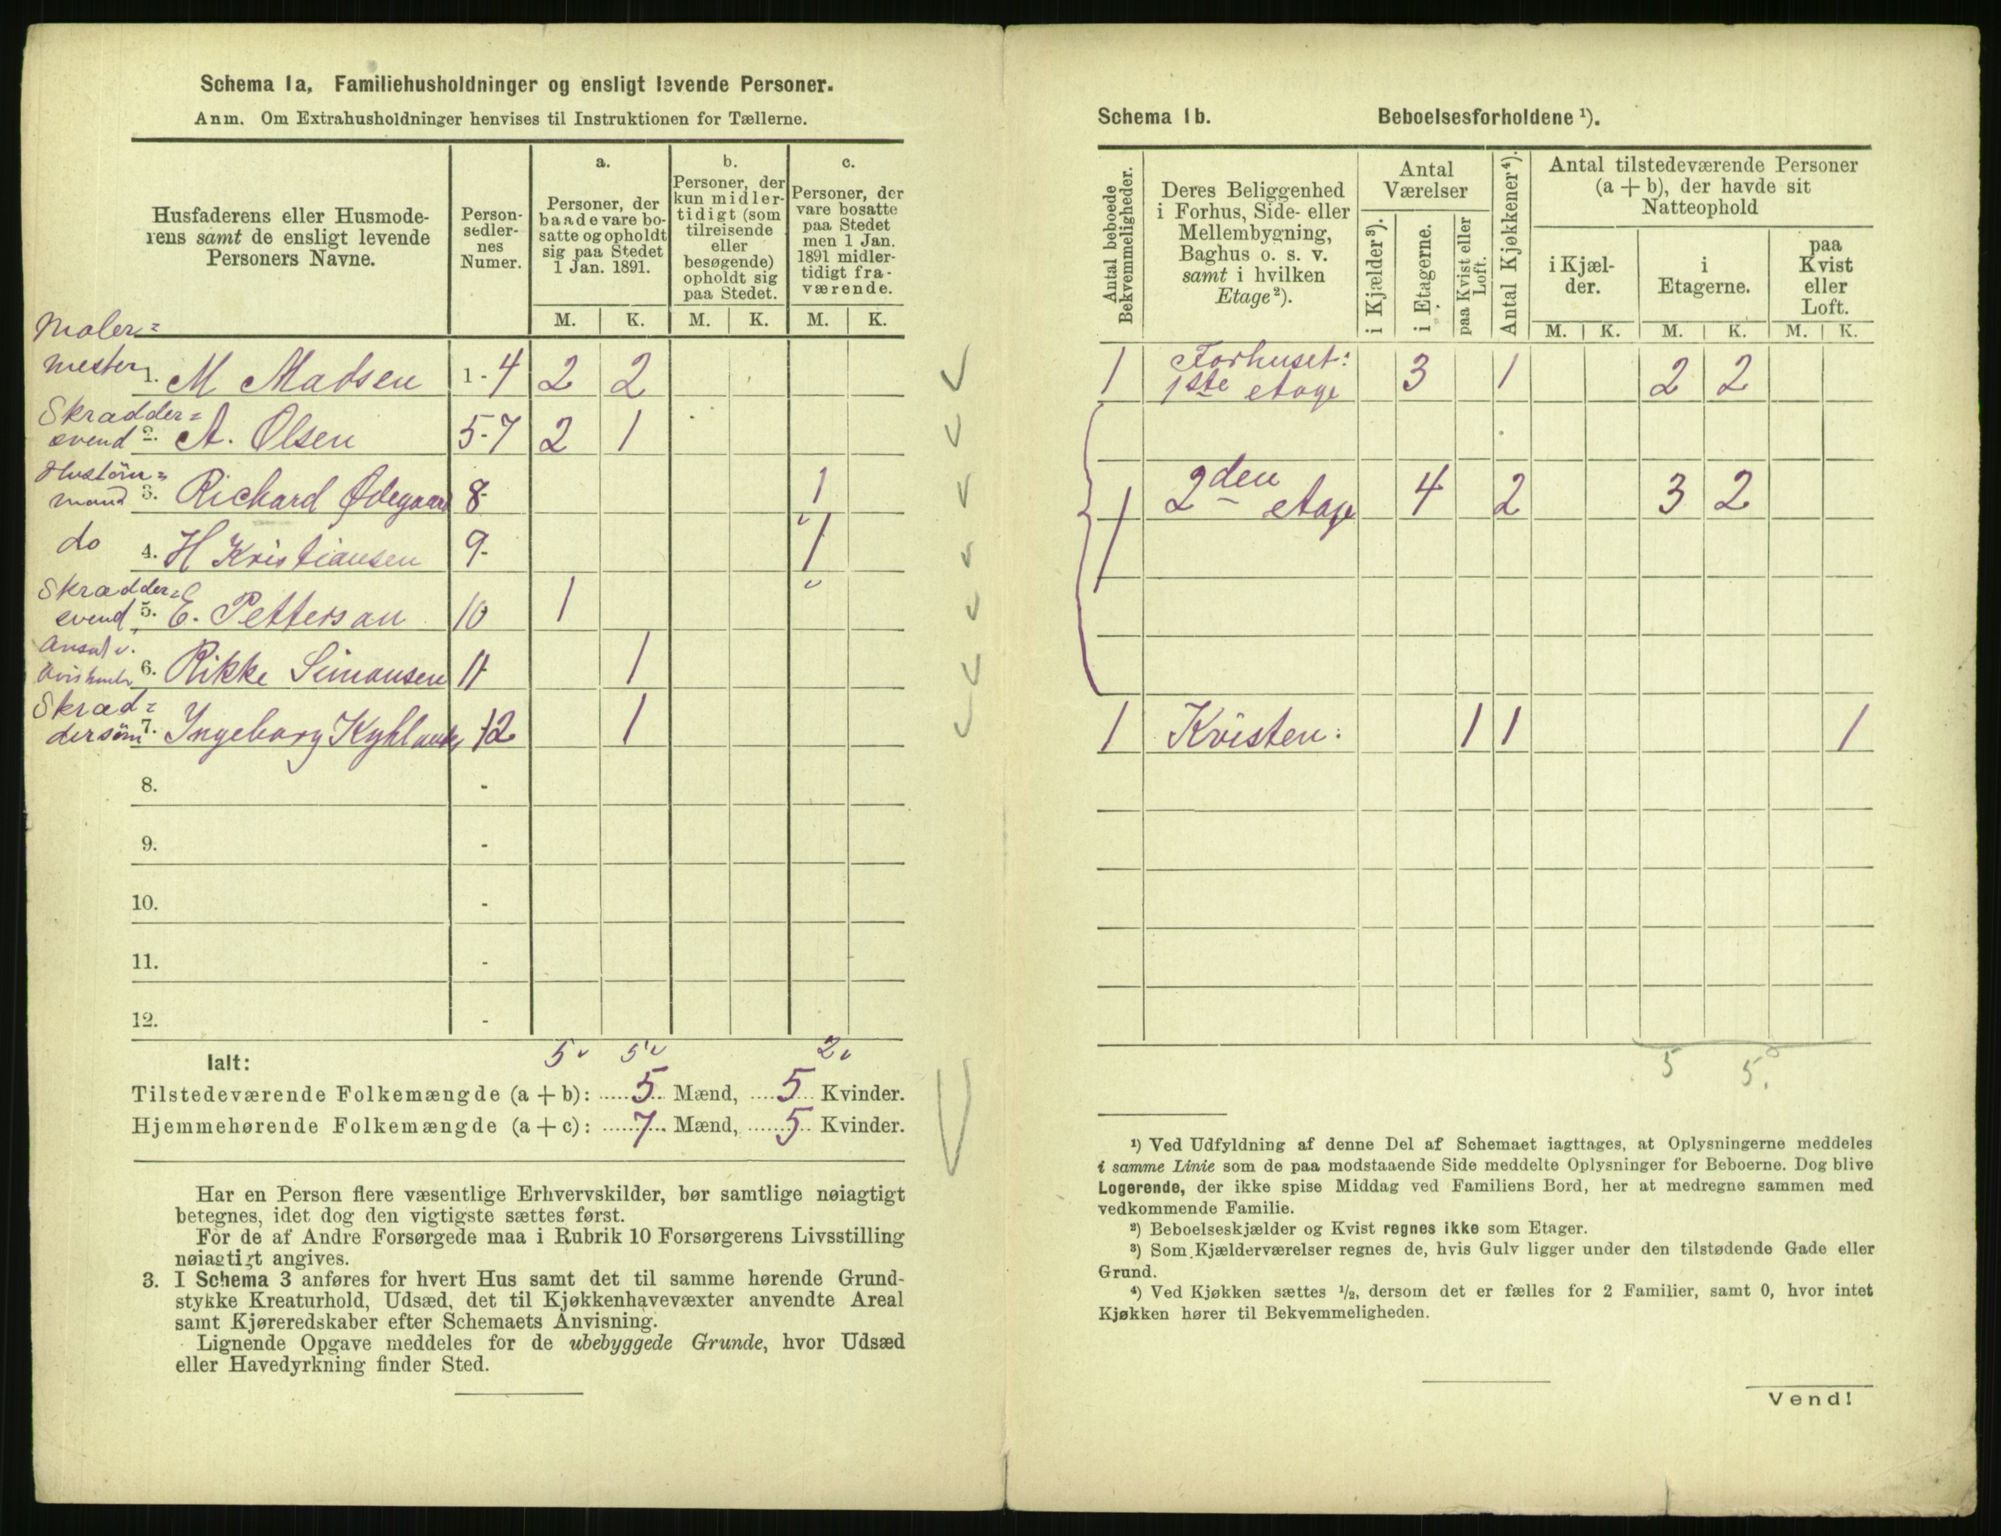 Schema 1a. Familiehusholdninger og ensligt levende Personer.
Anm. Om Extrahusholdninger henvises til Instruktionen for Tællerne.
Husfaderens eller Husmode-
rens samt de ensligt levende
Personers Navne.
Person-
sedler-
nes
Numer.
a.
Personer, der
baade vare bo-
satte og opholdt
sig paa Stedet
1 Jan. 1891.
b.
Personer, der
kun midler-
tidigt (som
tilreisende
eller
besøgende)
opholdt sig
paa Stedet.
c.
Personer, der
vare bosatte
paa Stedet
men 1 Jan.
1891 midler-
tidigt fra-
værende.
M. K. M. K. M. K.
Maler=
mester 1. M Madsen 1-4 2 2
Skrædder=
svend 2. A. Olsen 5-7 2 1
3. Richard Ødegaard 8- 1
mand
do 4. H Kristiansen 9- 1
Skrædder=
svend 5. E. Petterson 10 1
Ansat v.
6. Rikke Simonsen 11 1
Skræd=
dersøm 7. Ingeborg 12 1
8. -
9. -
10. -
11. -
12. -
Ialt: 5 5 2
Tilstedeværende Folkemængde (a + b): 5 Mænd, 5 Kvinder.
Hjemmehørende Folkemængde (a + c): 7 Mænd, 5 Kvinder.
Har en Person flere væsentlige Erhvervskilder, bør samtlige nøiagtigt
betegnes, idet dog den vigtigste sættes først.
For de af Andre Forsørgede maa i Rubrik 10 Forsørgerens Livsstilling
nøiagtigt angives.
3. I Schema 3 anføres for hvert Hus samt det til samme hørende Grund-
stykke Kreaturhold, Udsæd, det til Kjøkkenhavevæxter anvendte Areal
samt Kjøreredskaber efter Schemaets Anvisning.
Lignende Opgave meddeles for de ubebyggede Grunde, hvor Udsæd
eller Havedyrkning finder Sted.
Schema 1b. Beboelsesforholdene ¹).
Antal beboede
Bekvemmeligheder.
Deres Beliggenhed
i Forhus, Side- eller
Mellembygning,
Baghus o. s. v.
samt i hvilken
Etage ²).
Antal
Værelser
i Kjælder ³).
i Etagerne.
paa Kvist eller
Loft.
Antal Kjøkkener ⁴).
Antal tilstedeværende Personer
(a + b), der havde sit
Natteophold
i Kjæl-
der.
i
Etagerne.
paa
Kvist
eller
Loft.
M. K. M. K. M. K.
1 Forhuset:
1ste etage 3 1 2 2
1 2den etage 4 2 3 2
1 Kvisten: 1 1 1
5 5.
¹) Ved Udfyldning af denne Del af Schemaet iagttages, at Oplysningerne meddeles
i samme Linie som de paa modstaaende Side meddelte Oplysninger for Beboerne. Dog blive
Logerende, der ikke spise Middag ved Familiens Bord, her at medregne sammen med
vedkommende Familie.
²) Beboelseskjælder og Kvist regnes ikke som Etager.
³) Som Kjælderværelser regnes de, hvis Gulv ligger under den tilstødende Gade eller
Grund.
⁴) Ved Kjøkken sættes ½, dersom det er fælles for 2 Familier, samt 0, hvor intet
Kjøkken hører til Bekvemmeligheden.
Vend!